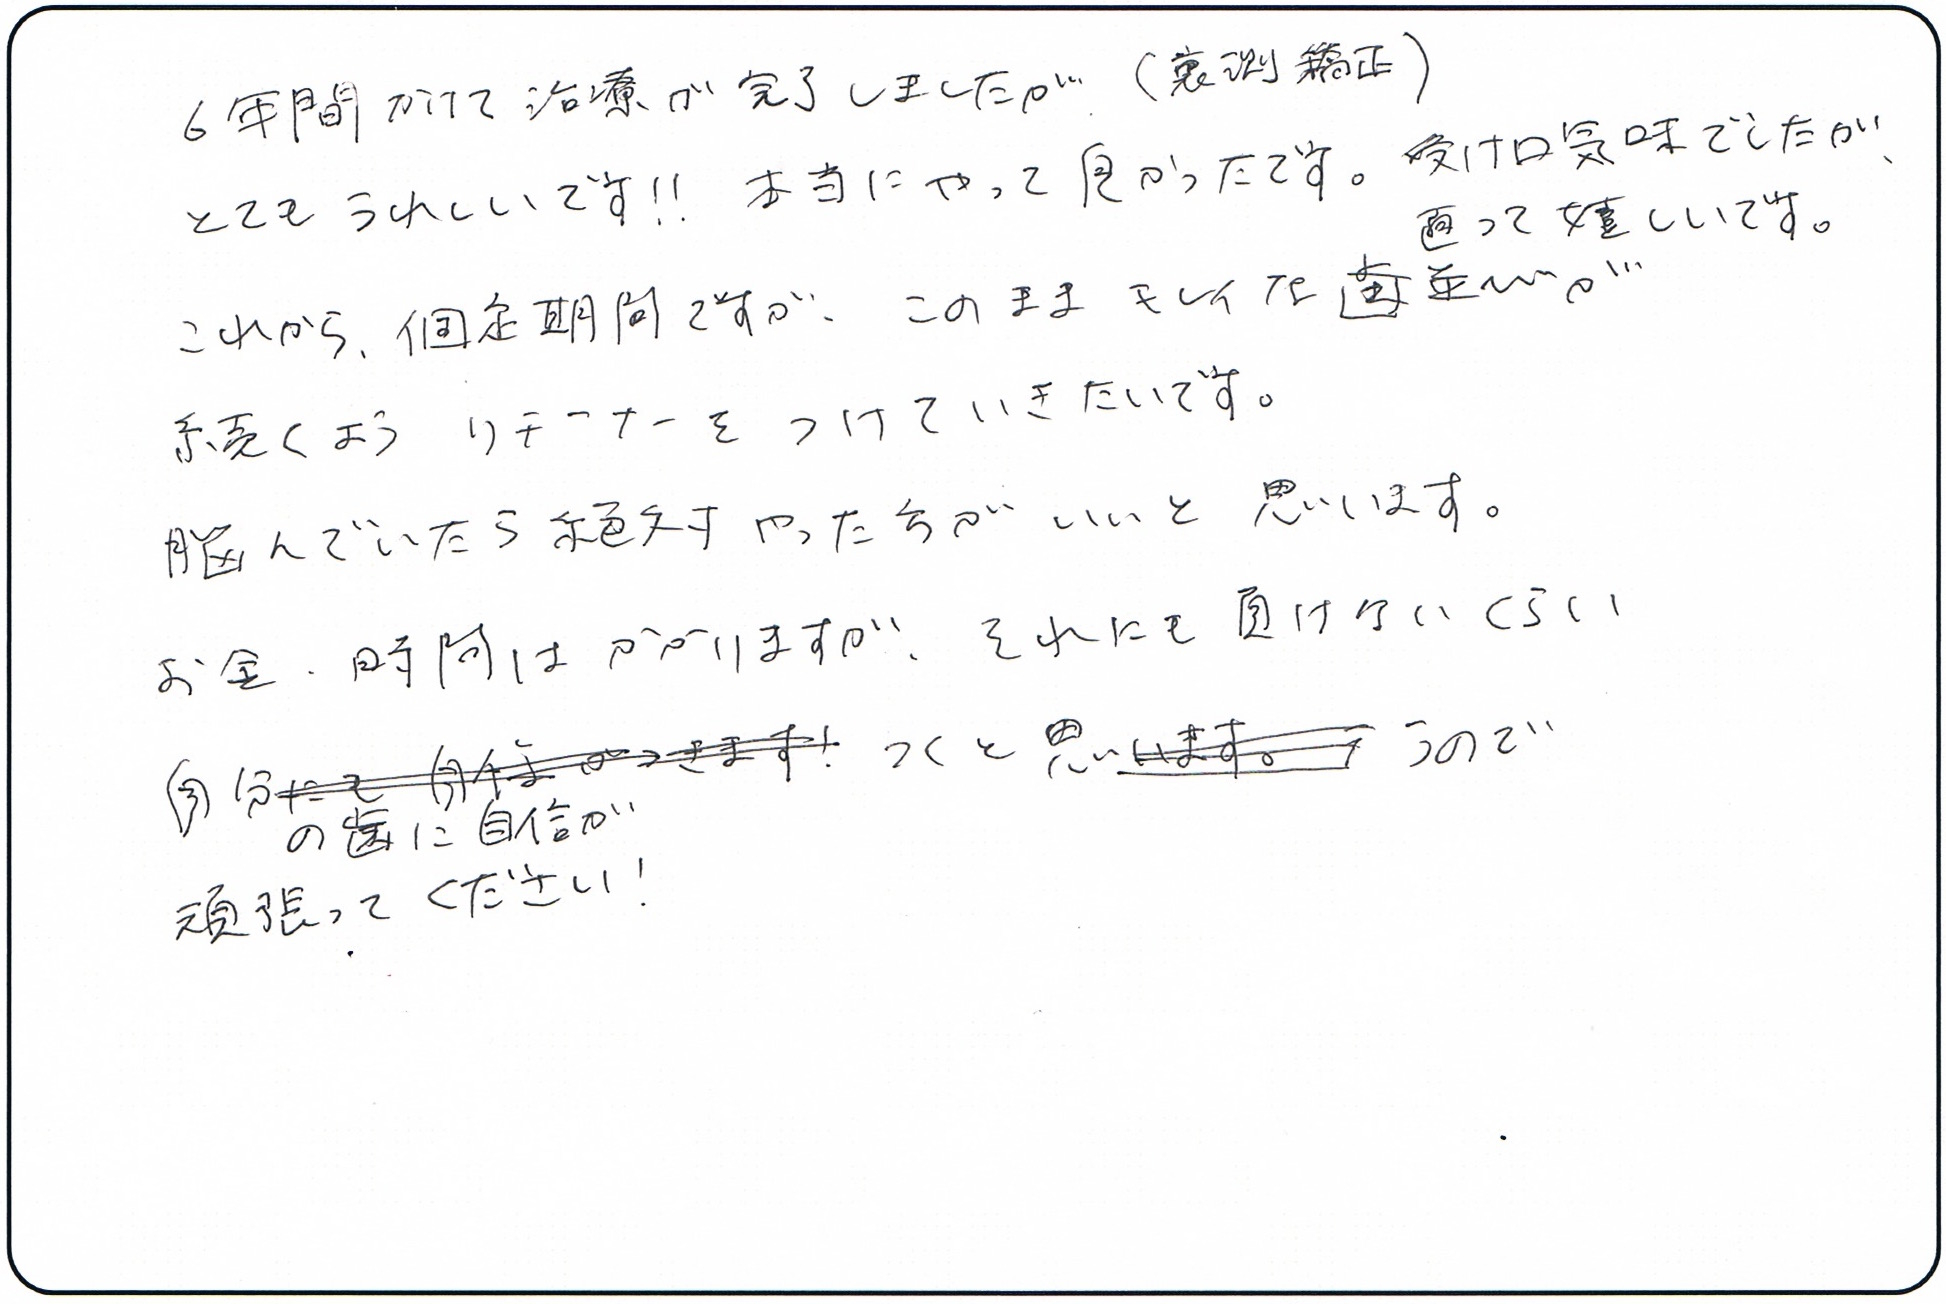 6年間かけて治療が完了しましたが、(裏測矯正)
とてもうれしいです!! 本当にやって良かったです。受け口気味でしたが、
直って嬉しいです。
これから、個定期間ですが、このままキレイな歯並びが
続くようリテーナーをつけていきたいです。
脳んでいたら絶対やった方がいいと思います。
お金、時間はかかりますが、それにも負けないくらい
自分にも自信がつきます! つくと思います。うので
の歯に自信が
頑張ってください!